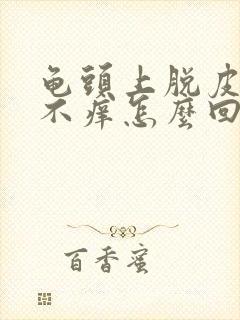 龟頭上脱皮
不痒怎麽回
百香蜜